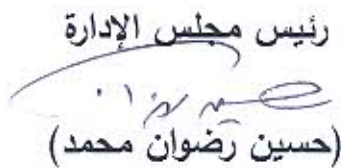 رئيس مجلس الإدارة
(حسين رضوان محمد)